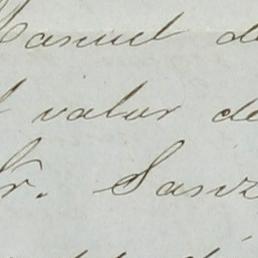 Manuel de
valor de
Sr. Sanz